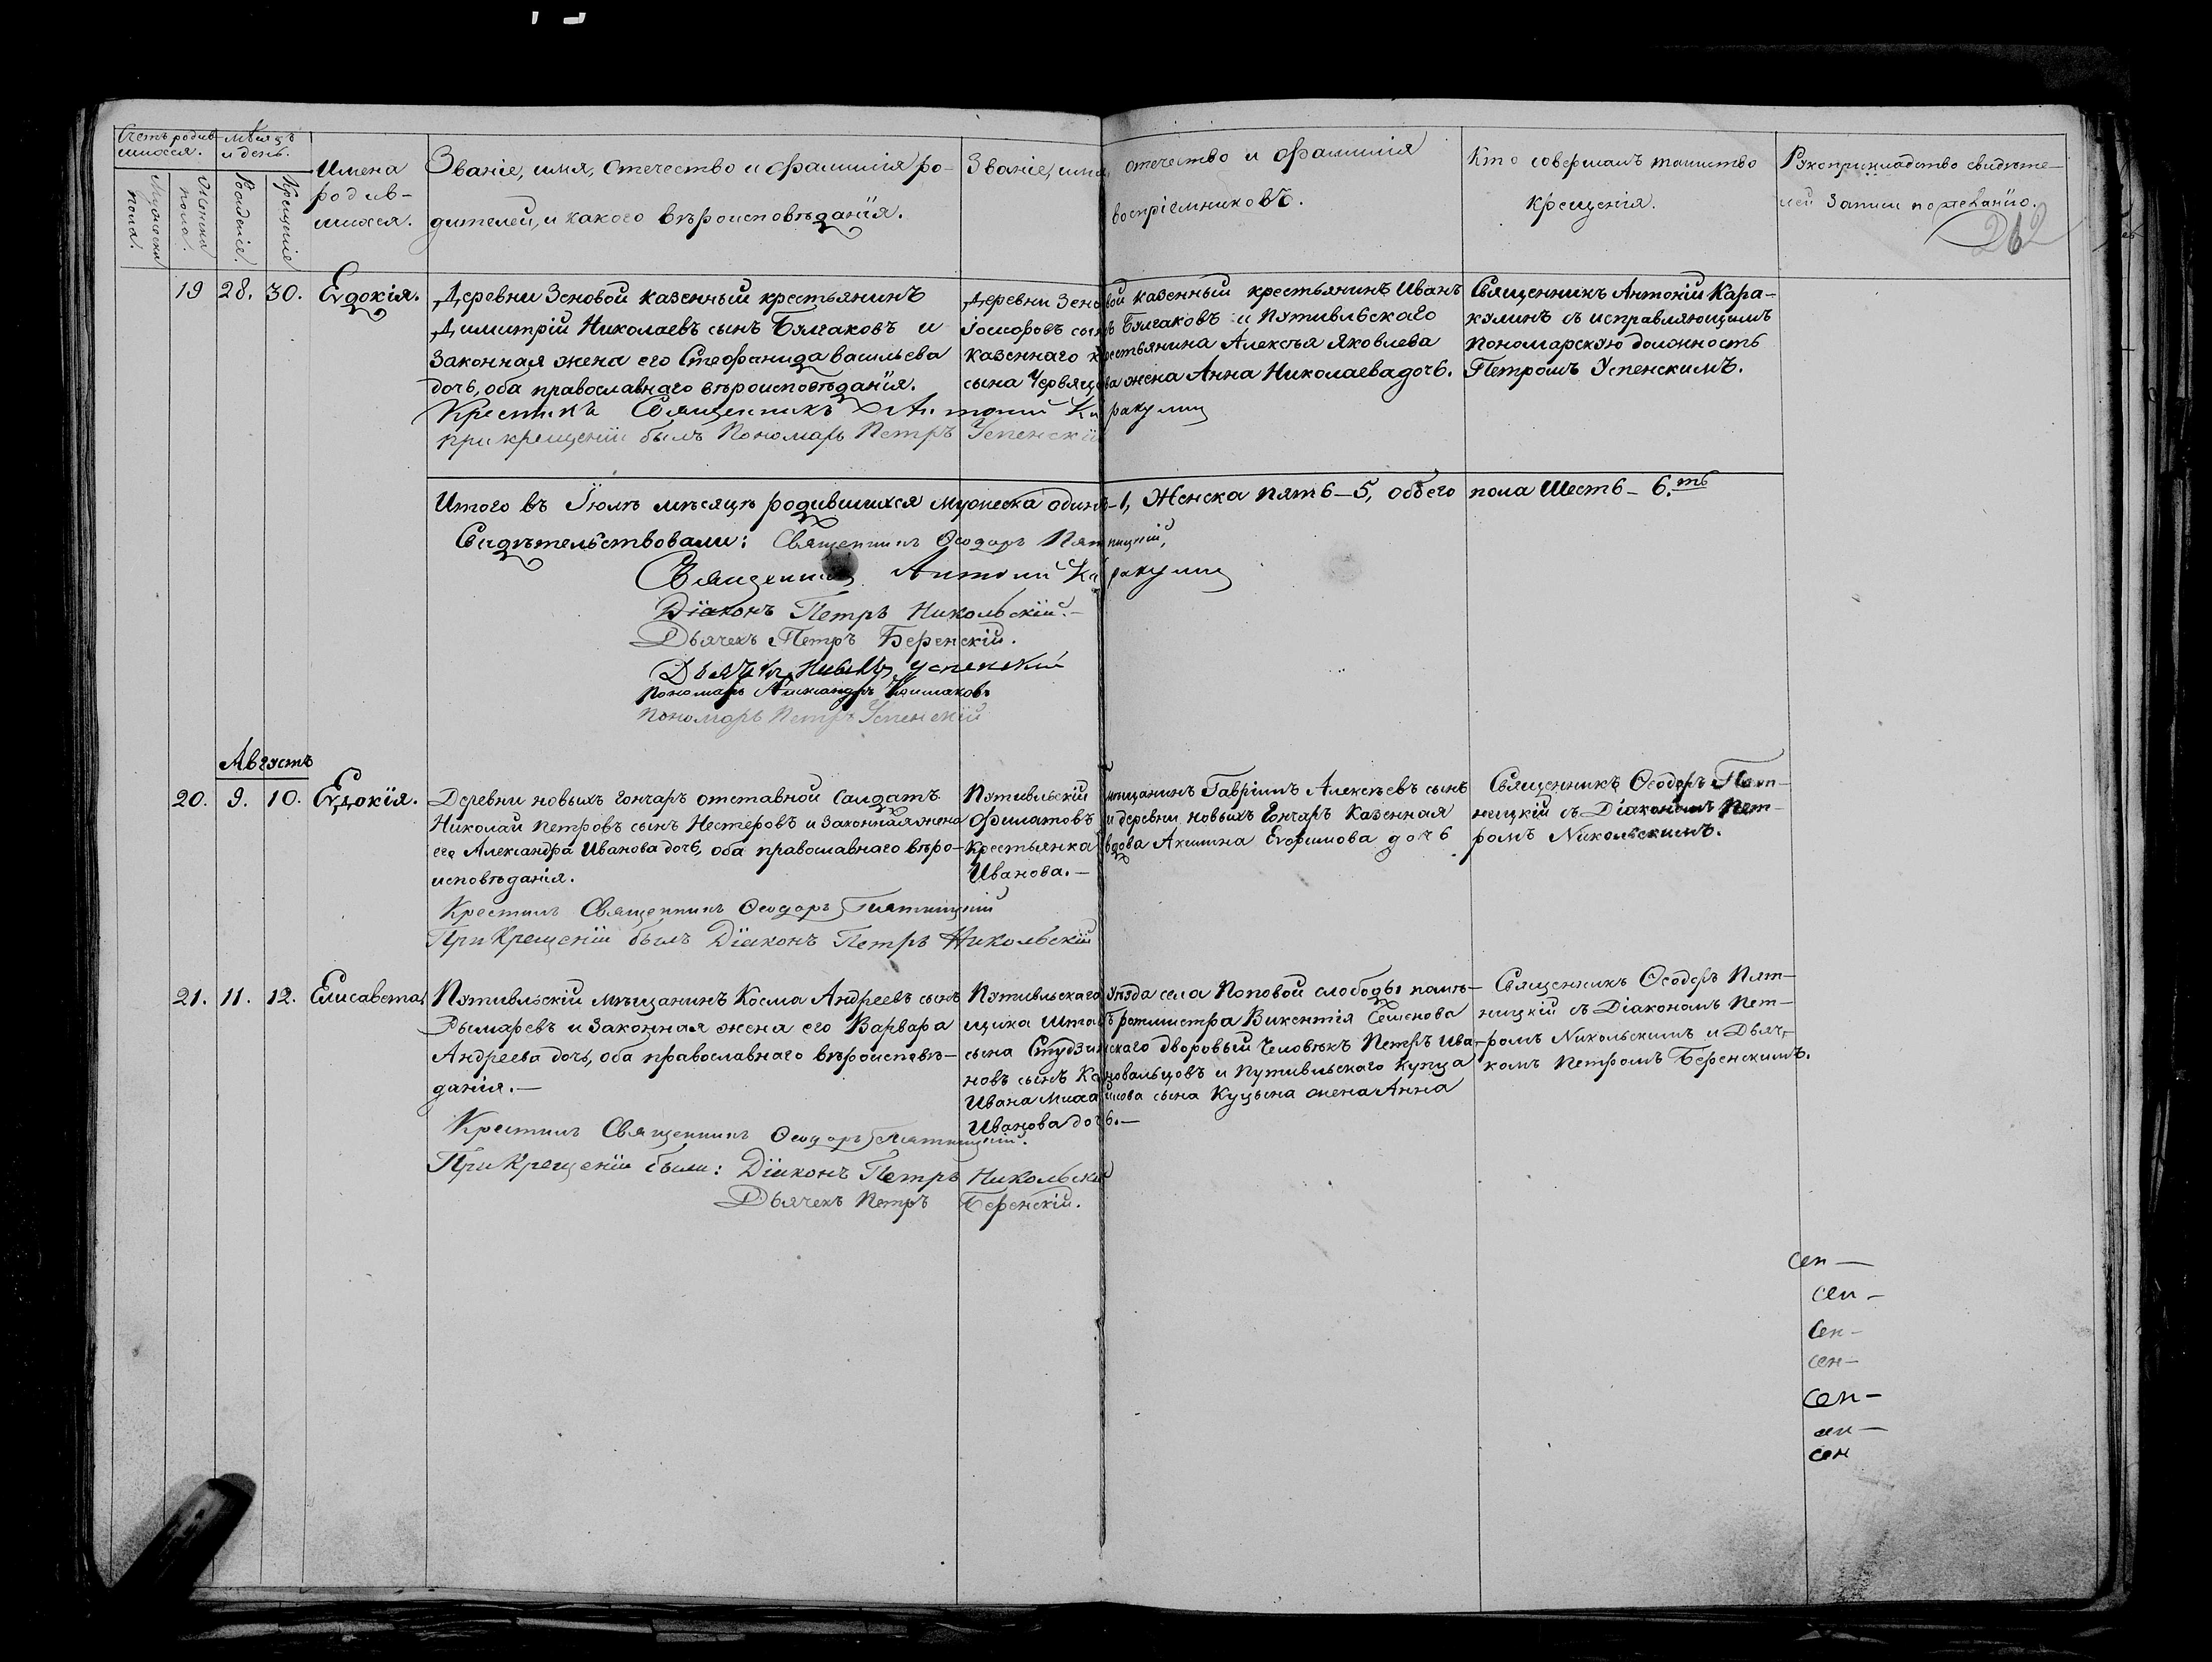 Счетъ родив-
шихся.
Мѣсяцъ
и день.
Мужеска
пола.
Женска
пола.
Рожденіе.
Крещеніе
Имена
родив-
шихся.
Званіе, имя, отечество и фамилія ро-
дителей, и какого вѣроисповѣданія.
Званіе, имя, отечество и фамилія
воспріемниковъ.
Кто совершалъ таинство
крещенія.
Рукоприкладство свидѣте-
лей записи по желанію.
262
19 28. 30. Евдокія.
Деревни Зеновой казенный крестьянинъ
Димитрій Николаевъ сынъ Булгаковъ и
законная жена его Стефанида Васильева
дочь, оба православнаго вѣроисповѣданія.
Деревни Зеновой казенный крестьянинъ Иванъ
сынъ Булгаковъ и Путивльскаго
казеннаго крестьянина Алексѣя Яковлева
сына Червяцова жена Анна Николаева дочь.
Священникъ Антоній Кара-
кулинъ съ исправляющимъ
пономарскую должность
Петромъ Успенскимъ.
Крестилъ Священникъ Антоній Каракулинъ
при крещеніи былъ Пономарь Петръ Успенскій
Итого въ Іюлѣ мѣсяцѣ родившихся мужеска одинъ–1, Женска пять–5, обоего пола Шесть– 6.ть
Свидѣтельствовали: Священникъ Ѳеодоръ Пятницкій,
Священникъ Антоній Каракулинъ
Діаконъ Петръ Никольскій.–
Дьячекъ Петръ Беренскій.
Успенскій
Пономарь Александръ
Пономарь Петръ Успенскій
Августъ
20. 9. 10. Евдокія.
Деревни новыхъ Гончаръ отставной Салдатъ
Николай Петровъ сынъ Нестеровъ и законная жена
его Александра Иванова дочь, оба православнаго вѣро-
исповѣданія.
Путивльскій мѣщанинъ Гавріилъ Алексѣевъ сынъ
Филатовъ и деревни новыхъ Гончаръ казенная
крестьянка вдова Акилина Евфимова дочь
Иванова.–
Священникъ Ѳеодоръ Пят-
ницкій съ Діакономъ Пет-
ромъ Никольскимъ.
Крестилъ Священникъ Ѳеодоръ Пятницкій
При Крещеніи былъ Діаконъ Петръ Никольскій
21. 11. 12. Елисавета.
Путивльскій мѣщанинъ Косма Андреевъ сынъ
Рымаревъ и законная жена его Варвара
Андреева дочь, оба православнаго вѣроисповѣ-
данія.–
Путивльскаго уѣзда села Поповой слободы помѣ-
щика Штабъ ротмистра Викентія Семенова
сына Студзинскаго дворовый человѣкъ Петръ Ива-
новъ сынъ Коновальцовъ и Путивльскаго Купца
Ивана Михайлова сына Куцына жена Анна
Иванова дочь.–
Священникъ Ѳеодоръ Пят-
ницкій съ Діакономъ Пет-
ромъ Никольскимъ и Дьяч-
комъ Петромъ Беренскимъ.
Крестилъ Священникъ Ѳеодоръ Пятницкій.
При Крещеніи были: Діаконъ Петръ Никольскій
Дьячекъ Петръ Беренскій.
Сен –
сен –
Сен –
сен –
Сен –
сен –
сен